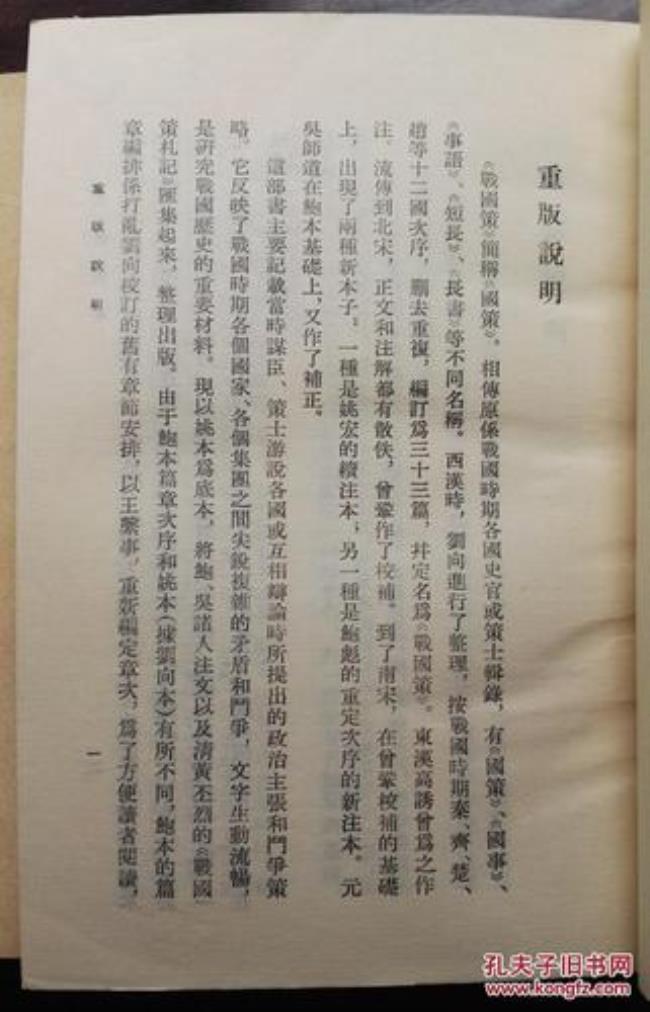 重版說明
《戰國策》簡稱《國策》。相傳原係戰國時期各國史官或策士輯錄，有《國策》、《國事》、
《事語》、《短長》、《長書》等不同名稱。西漢時，劉向進行了整理，按戰國時期秦、齊、楚、
趙等十二國次序，刪去重複，編訂爲三十三篇，并定名爲《戰國策》。東漢高誘曾爲之作
注。流傳到北宋，正文和注解都有散佚，曾鞏作了校補。到了南宋，在曾鞏校補的基礎
上，出現了兩種新本子。一種是姚宏的續注本；另一種是鮑彪的重定次序的新注本。元
吳師道在鮑本基礎上，又作了補正。
這部書主要記載當時謀臣、策士游說各國或互相辯論時所提出的政治主張和鬥爭策
略。它反映了戰國時期各個國家、各個集團之間尖銳複雜的矛盾和鬥爭，文字生動流暢，
是研究戰國歷史的重要材料。現以姚本爲底本，將鮑、吳諸人注文以及清黃丕烈的《戰國
策札記》匯集起來，整理出版。由于鮑本篇章次序和姚本（據劉向本）有所不同，鮑本的篇
章編排係打亂劉向校訂的舊有章節安排，以王繫事，重新編定章次，爲了方便讀者閱讀，
重版說明
一
孔夫子旧书网
kongfz.com